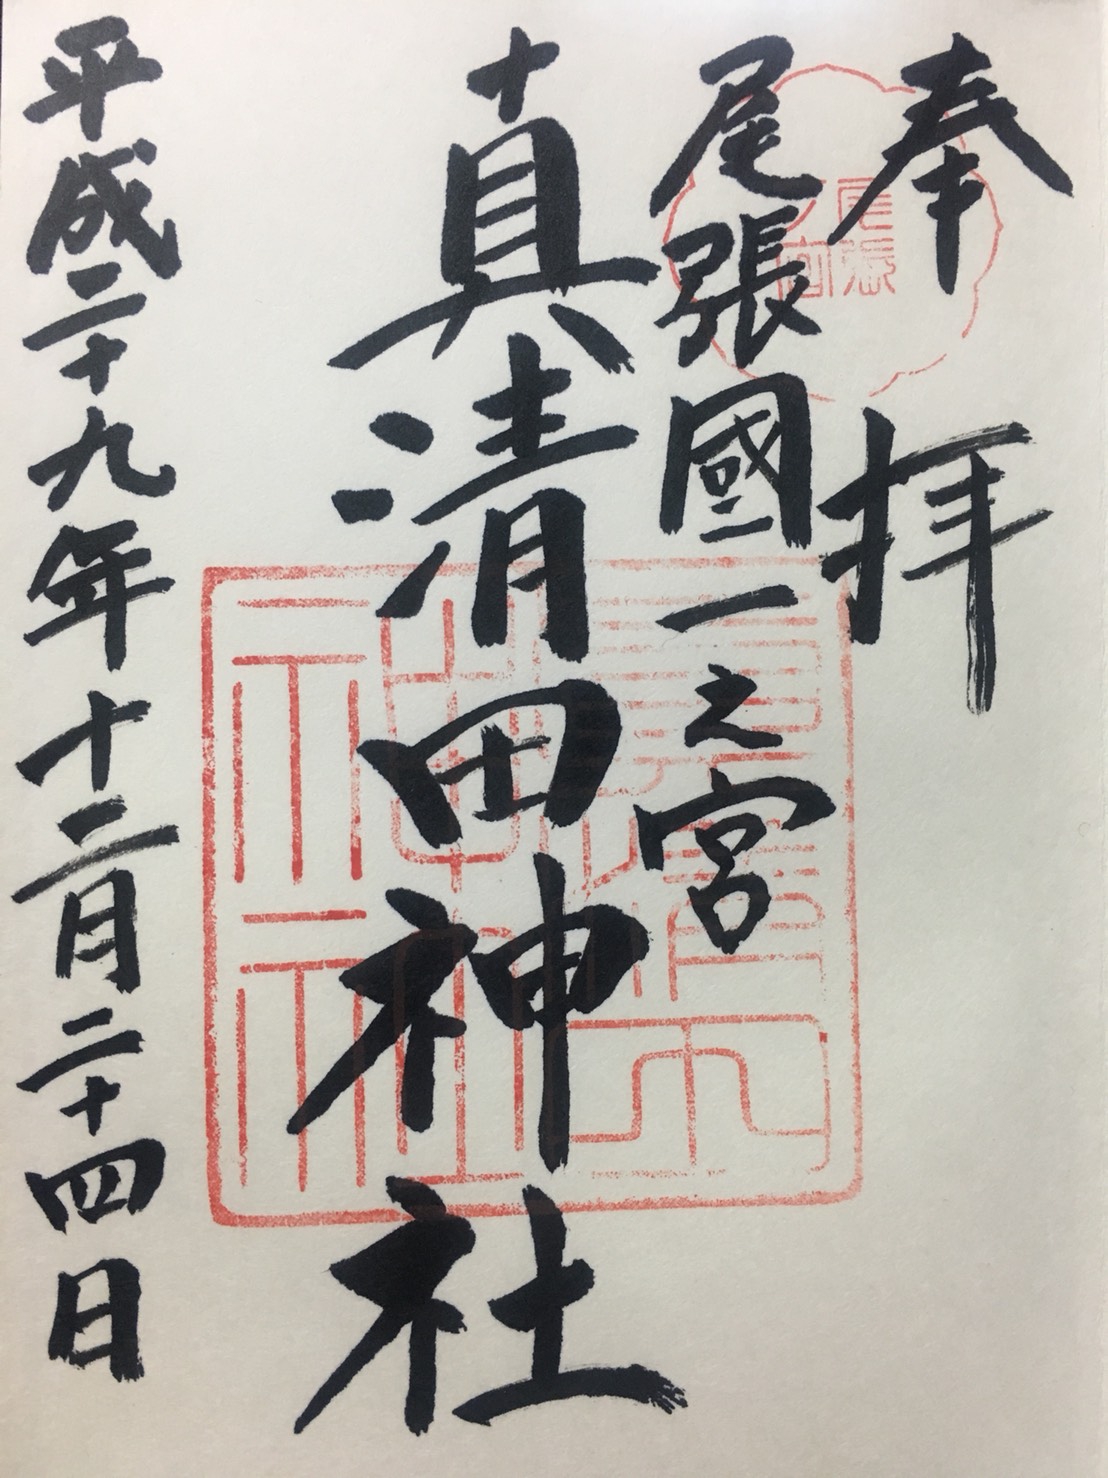 奉拝
尾張國一之宮
真清田神社
平成二十九年十二月二十四日
尾張
真清田
神社